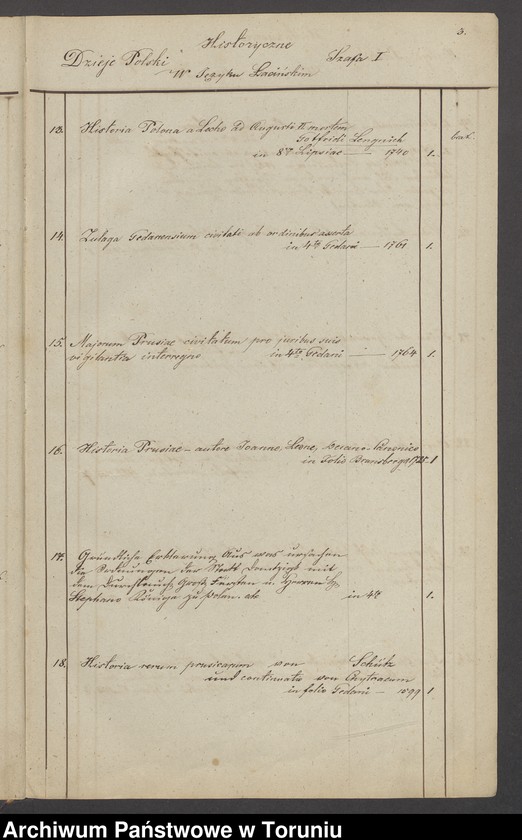 3.
Historyczne
Dzieje Polski Szafa I
W Języku Łacińskim
13. Historia Polona a Lecho ad Augusti II mortem
Gotfridi Lengnich
in 8vo Lipsiae — 1740 1.
brak.
14. Zulaga Gedanensium civitati ab ordinibus asserta
in 4to Gedani — 1761 1.
15. Majorum Prusiae civitatum pro juribus suis
vigilantia interregno in 4to Gedani — 1764 1.
16. Historia Prusiae — autore Joanne Leone, Canonico
in Folio Brunsbergae 1725. 1
17. Gründliche Erklärung Aus was ursachen
die der Stadt Dantzigk mit
dem Durchleuch. Groß Fürsten u.
Stephano Königa zu Polen etc in 4to 1.
18. Historia rerum prusicarum von Schütz
und continuata von Chytraeum
in folio Gedani — 1599 1
Archiwum Państwowe w Toruniu